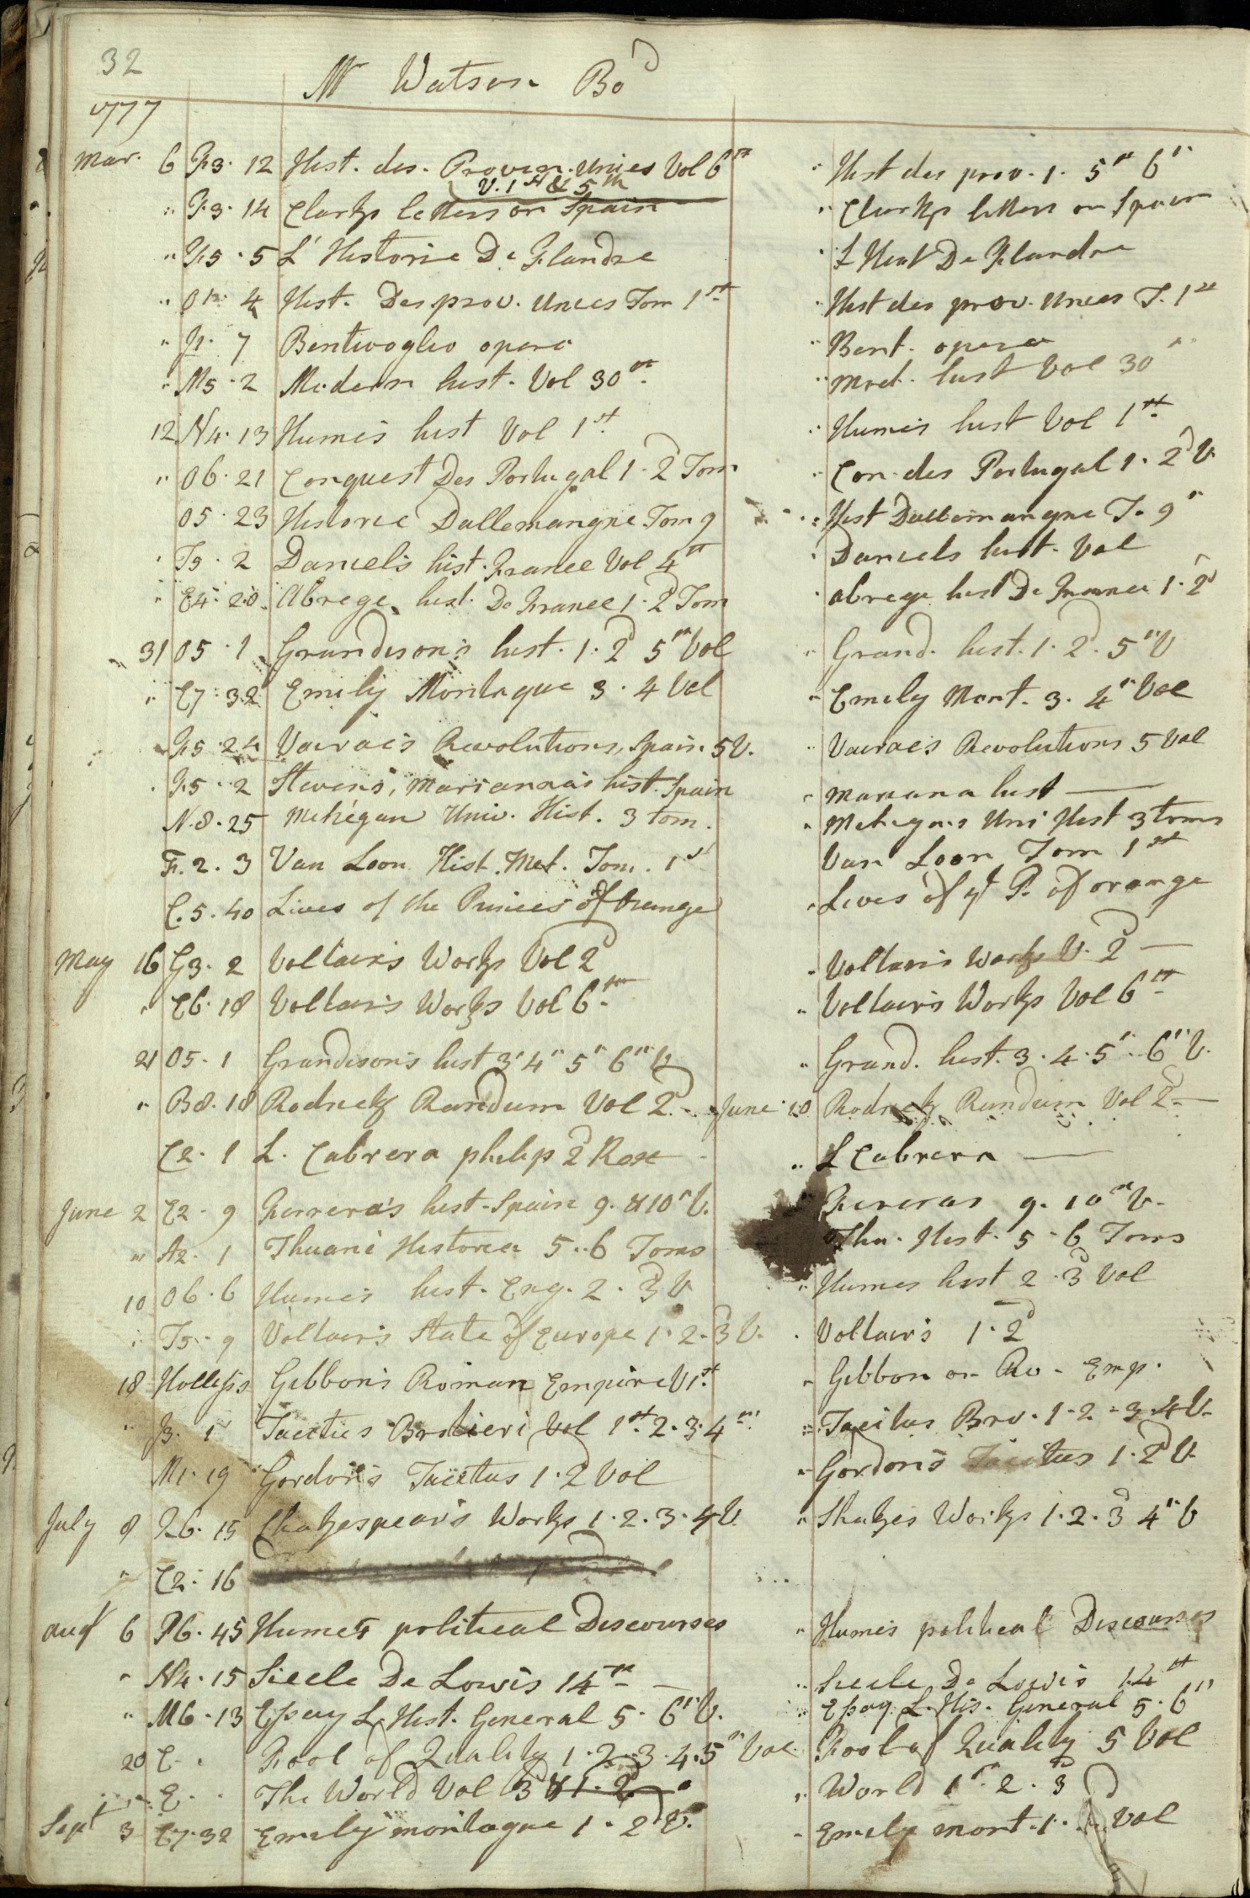 32
Mr Watson Bo^d
1777
Mar. 6 F3. 12 Hist. des. Provin. Unies Vol 6th " Hist des prov. 1. 5th 6th
V. 1st & 5th
" F3. 14 Clarks letters on Spain " Clarks letters on Spain
" F5. 5 L' Historie De Flandre " L Hist De Flandre
" 4 Hist. Des prov. Unies Tom 1st " Hist des prov. Unies T. 1st
" 7 Bentivoglio opera " Bent. opera
" M5. 2 Modern hist. Vol 30th " Mod. hist Vol 30
12 N4. 13 Humes hist Vol 1st " Humes hist Vol 1st
" O6. 21 Conquest Des Portugal 1. 2 Tom " Con. des Portugal 1. 2d V.
O5. 23 Historie Dallemangne Tom 9 " Hist Dallemangne T. 9
" 2 Daniels hist. France Vol 4th " Daniels hist. Vol
" E4. 20. Abrege hist. De France 1. 2d Tom " abrege hist De France 1. 2d
31 O5. 1 Grandison's hist. 1. 2d 5th Vol " Grand. hist. 1. 2d. 5th V
" E7. 32 Emily Montague 3. 4 Vol " Emily Mont. 3. 4th Vol
F5 24 Vairac's Revolutions, Spain. 5 V. " Vairaes Revolutions 5 Vol
" F5. 2 Stevens, Marianna's hist. Spain " Mariana hist —
N. 8. 25 Mehégan Univ. Hist. 3 tom. " Mehegans Uni Hist 3 toms
F. 2. 3 Van Loon Hist. Met. Tom. 1st Van Loon Tom 1st
C. 5. 40 Lives of the Princes of Orange " Lives of ye P. of orange
May 16 G3. 2 Voltairs Works Vol 2d " Voltairs Works V. 2d —
" E6. 18 Voltairs Works Vol 6th " Voltairs Works Vol 6th
21 O5. 1 Grandison's hist 3d 4th 5th 6th V " Grand. hist. 3. 4. 5th. 6th V.
" B8. 18 Rodrick Randum Vol 2d. June 10 Rodrick Randum Vol 2d —
C2. 1 L. Cabrera philip 2d Rex " L Cabrera —
June 2 E2. 9 Ferrera's hist. Spain 9. & 10th V. " Fereras 9. 10th V.
" A2. 1 Thuani Historia 5. 6 Toms Thu. Hist. 5. 6 Toms
10 O6. 6 Humes hist. Eng. 2. 3d V " Humes hist 2. 3d Vol
" 9 Voltair's State of Europe 1. 2. 3d V. " Voltairs 1. 2d
18 Hollis's Gibbon's Roman Empire V 1st " Gibbon on Ro. Emp.
" 1 Tacitus Brotieri Vol 1st. 2. 3. 4th " Tacitus Bro. 1. 2. 3. 4 V.
M1. 19 Gordon's Tacitus 1. 2d Vol " Gordon's Tacitus 1. 2d V.
July 9 15 Shakespear's Works 1. 2. 3. 4 V. " Shakes Works 1. 2. 3d 4th V
" E2. 16
Augt 6 P6. 45 Hume's political Discourses " Humes political Discourses
" N4. 15 Siecle De Lowis 14th — " Siecle De Lowis 14th
" M6. 13 Essay L. Hist. General 5. 6th V. " Essay L. His. General 5. 6th
20 E . Fool of Quality 1. 2. 3. 4. 5th Vol. Fool of Quality 5 Vol
E . The World Vol 3d & 1. 2d " World 1st. 2. 3d
Sept 3 E7. 32 Emily montague 1. 2d V. " Emily mont. 1. Vol